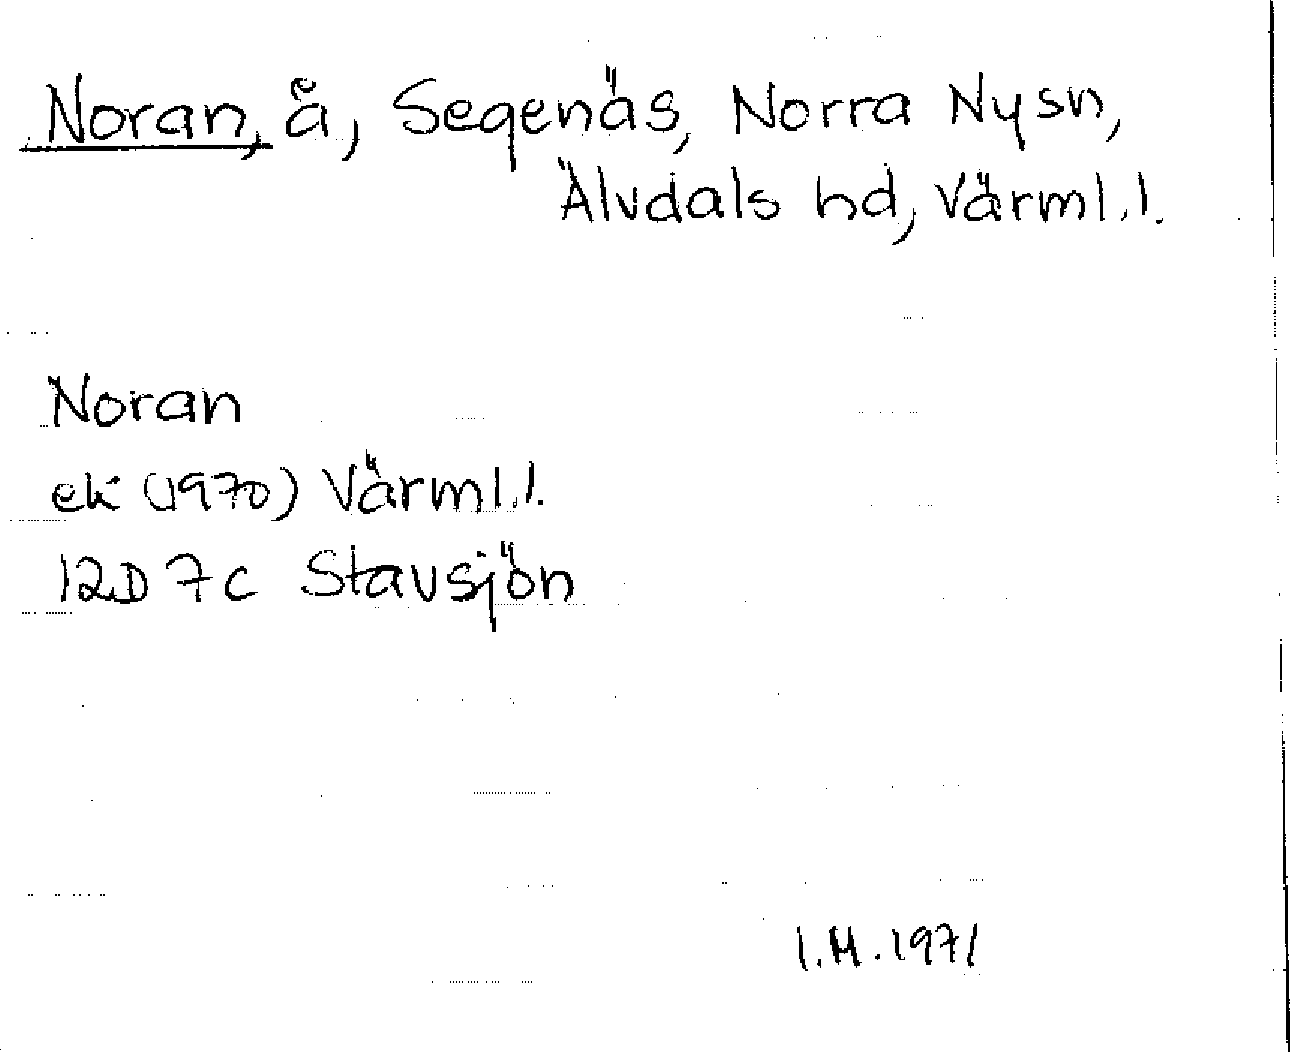 Noran, å, Segenäs, Norra Nysn,
Älvdals hd, Värml.l.
Noran
ek (1970) Värml.l.
12D 7c Stavsjön
I.M. 1971